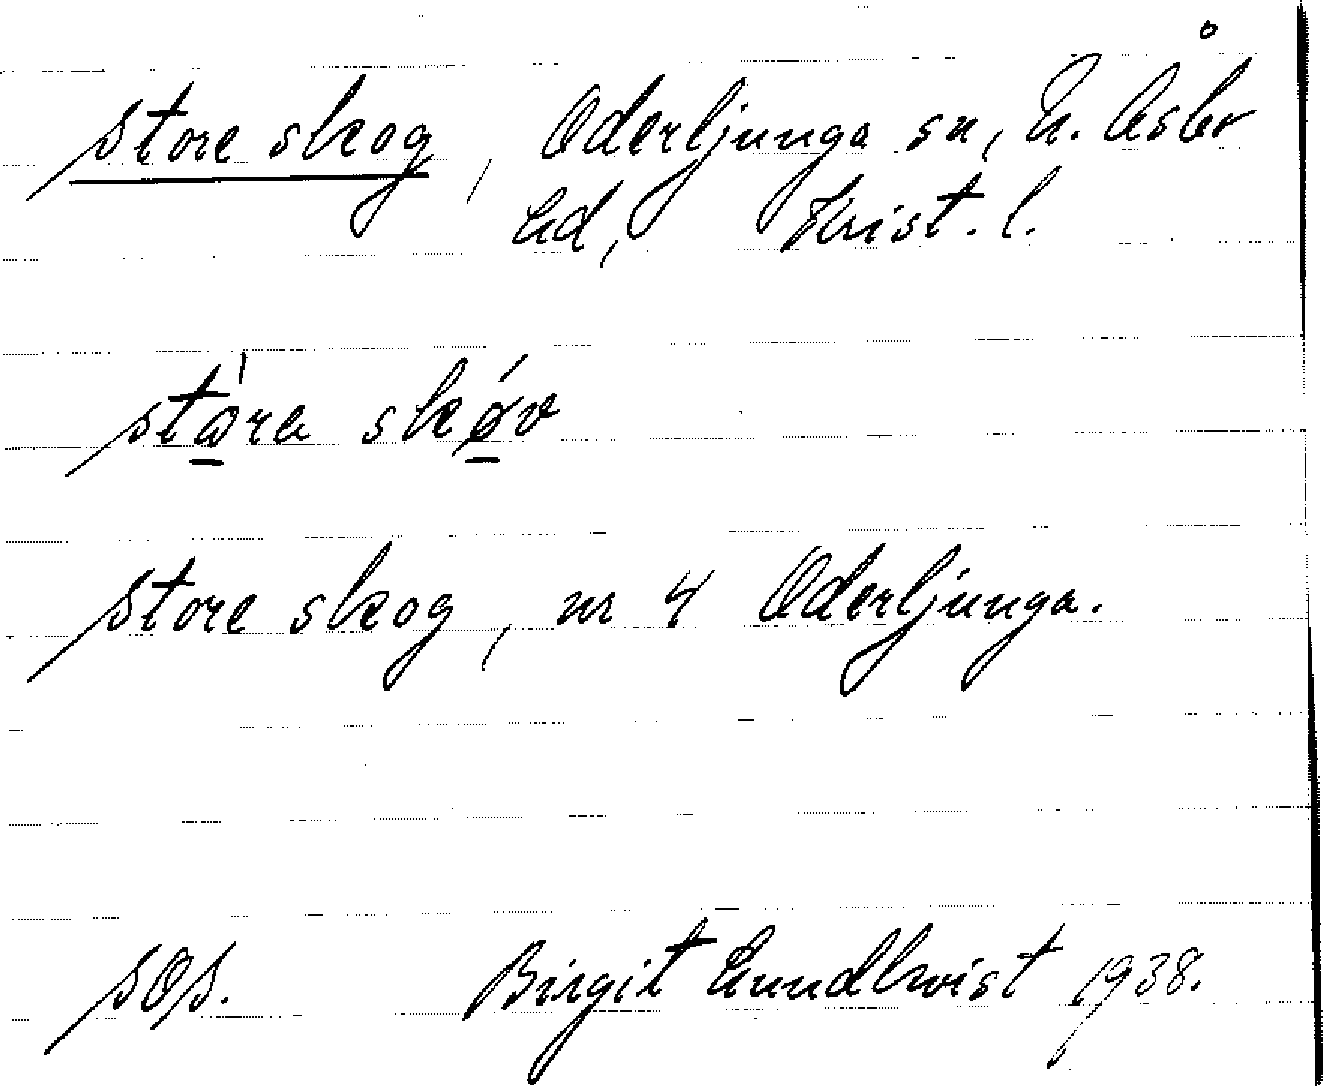 Store skog, Oderljunga sn, N. Åsbo
hd, Krist. l.
sto̱̍ra skó̱v
Store skog, nr 4 Oderljunga.
SOS. Birgit Lundkvist 1938.